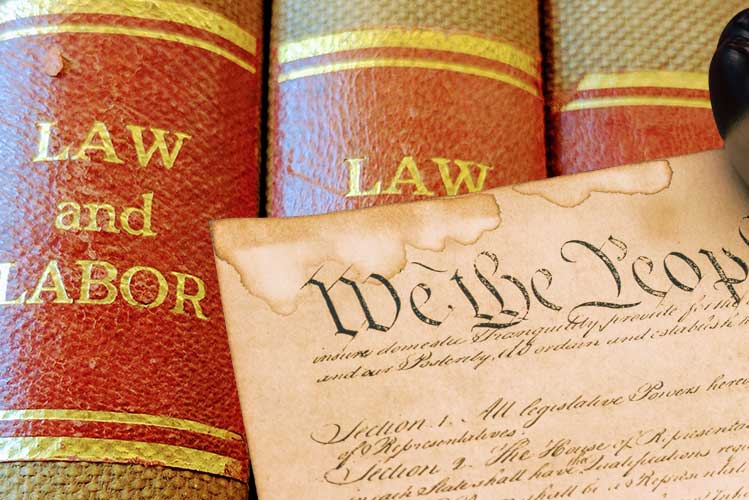 LAW
and
LABOR
LAW
We the Peop
insure domestic Tranquility, provide for the
and our Posterity, do ordain and establish
Section. 1. All legislative Powers herei
of Representatives.
Section. 2. The House of Representat
in each State shall have Qualifications req
shall be a Represent